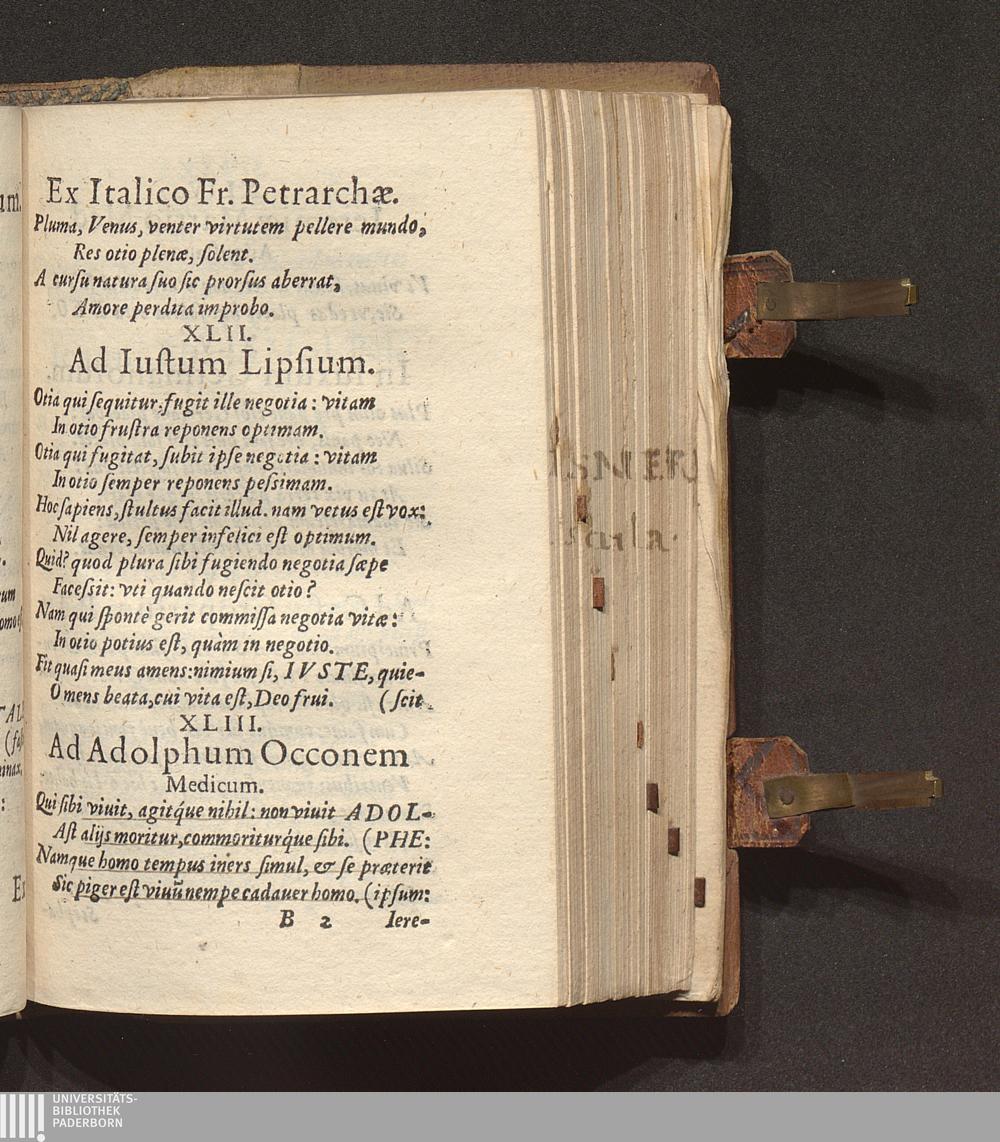 um.
Ex Italico Fr. Petrarchæ.
Pluma, Venus, venter virtutem pellere mundo,
Res otio plenæ, ſolent.
A curſu natura ſuo ſic prorſus aberrat,
Amore perdita improbo.
XLII.
Ad Iuſtum Lipſium.
Otia qui ſequitur, fugit ille negotia: vitam
In otio fruſtra reponens optimam.
Otia qui fugitat, ſubit ipſe negotia: vitam
In otio ſemper reponens peſsimam.
Hoc ſapiens, ſtultus facit illud. nam vetus eſt vox:
Nil agere, ſemper infelici eſt optimum.
Quid? quod plura ſibi fugiendo negotia ſæpe
Faceſsit: vti quando neſcit otio?
Nam qui ſpontè gerit commiſſa negotia vitæ:
In otio potius eſt, quàm in negotio.
Fit quaſi meus amens: nimium ſi, IVSTE, quie-
O mens beata, cui vita eſt, Deo frui. (ſcit
XLIII.
Ad Adolphum Occonem
Medicum.
Qui ſibi viuit, agitq́ue nihil: non viuit ADOL-
Aſt alijs moritur, commoriturq́ue ſibi. (PHE:
Namque homo tempus iners ſimul, & ſe præterit
Sic piger eſt viuũ nempe cadauer homo. (ipſum:
B 2 Iere-
UNIVERSITÄTS-
BIBLIOTHEK
PADERBORN